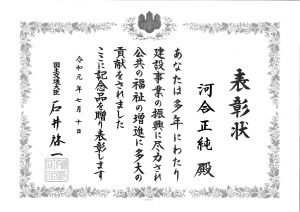 表彰状
河合正純 殿
あなたは多年にわたり
建設事業の振興に尽力され
公共の福祉の増進に多大の
貢献をされました
ここに記念品を贈り表彰します
令和元年七月十日
国土交通大臣 石井啓一